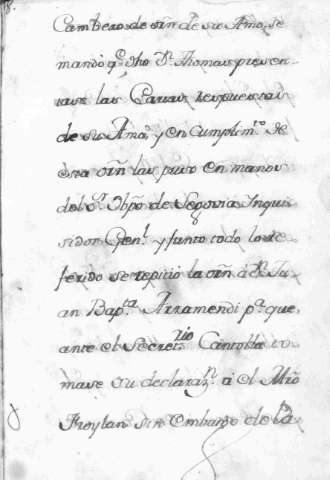 Cambero de orn de su Amo, se
mando q.e dho D.n Thomas presen-
tase las Cartas respuestas
de su Amo, y en cumplim.to de
esta orn las puso en manos
del S.r Obpo de Segovia Inqui
sidor Gen.l y junto todo lo re-
ferido se repitio la orn á D.n Ju-
an Bap.ta Arramendi p.a que,
ante el Secret.rio Cantolla to
mase su declaraz.n á el Mro
Froylan sin embargo de la